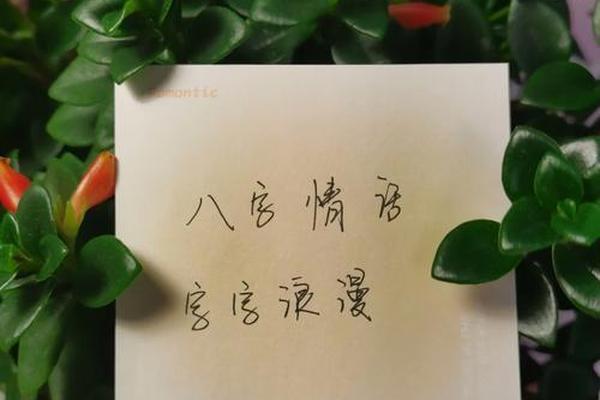 Romontic
八字情话
字字浪漫